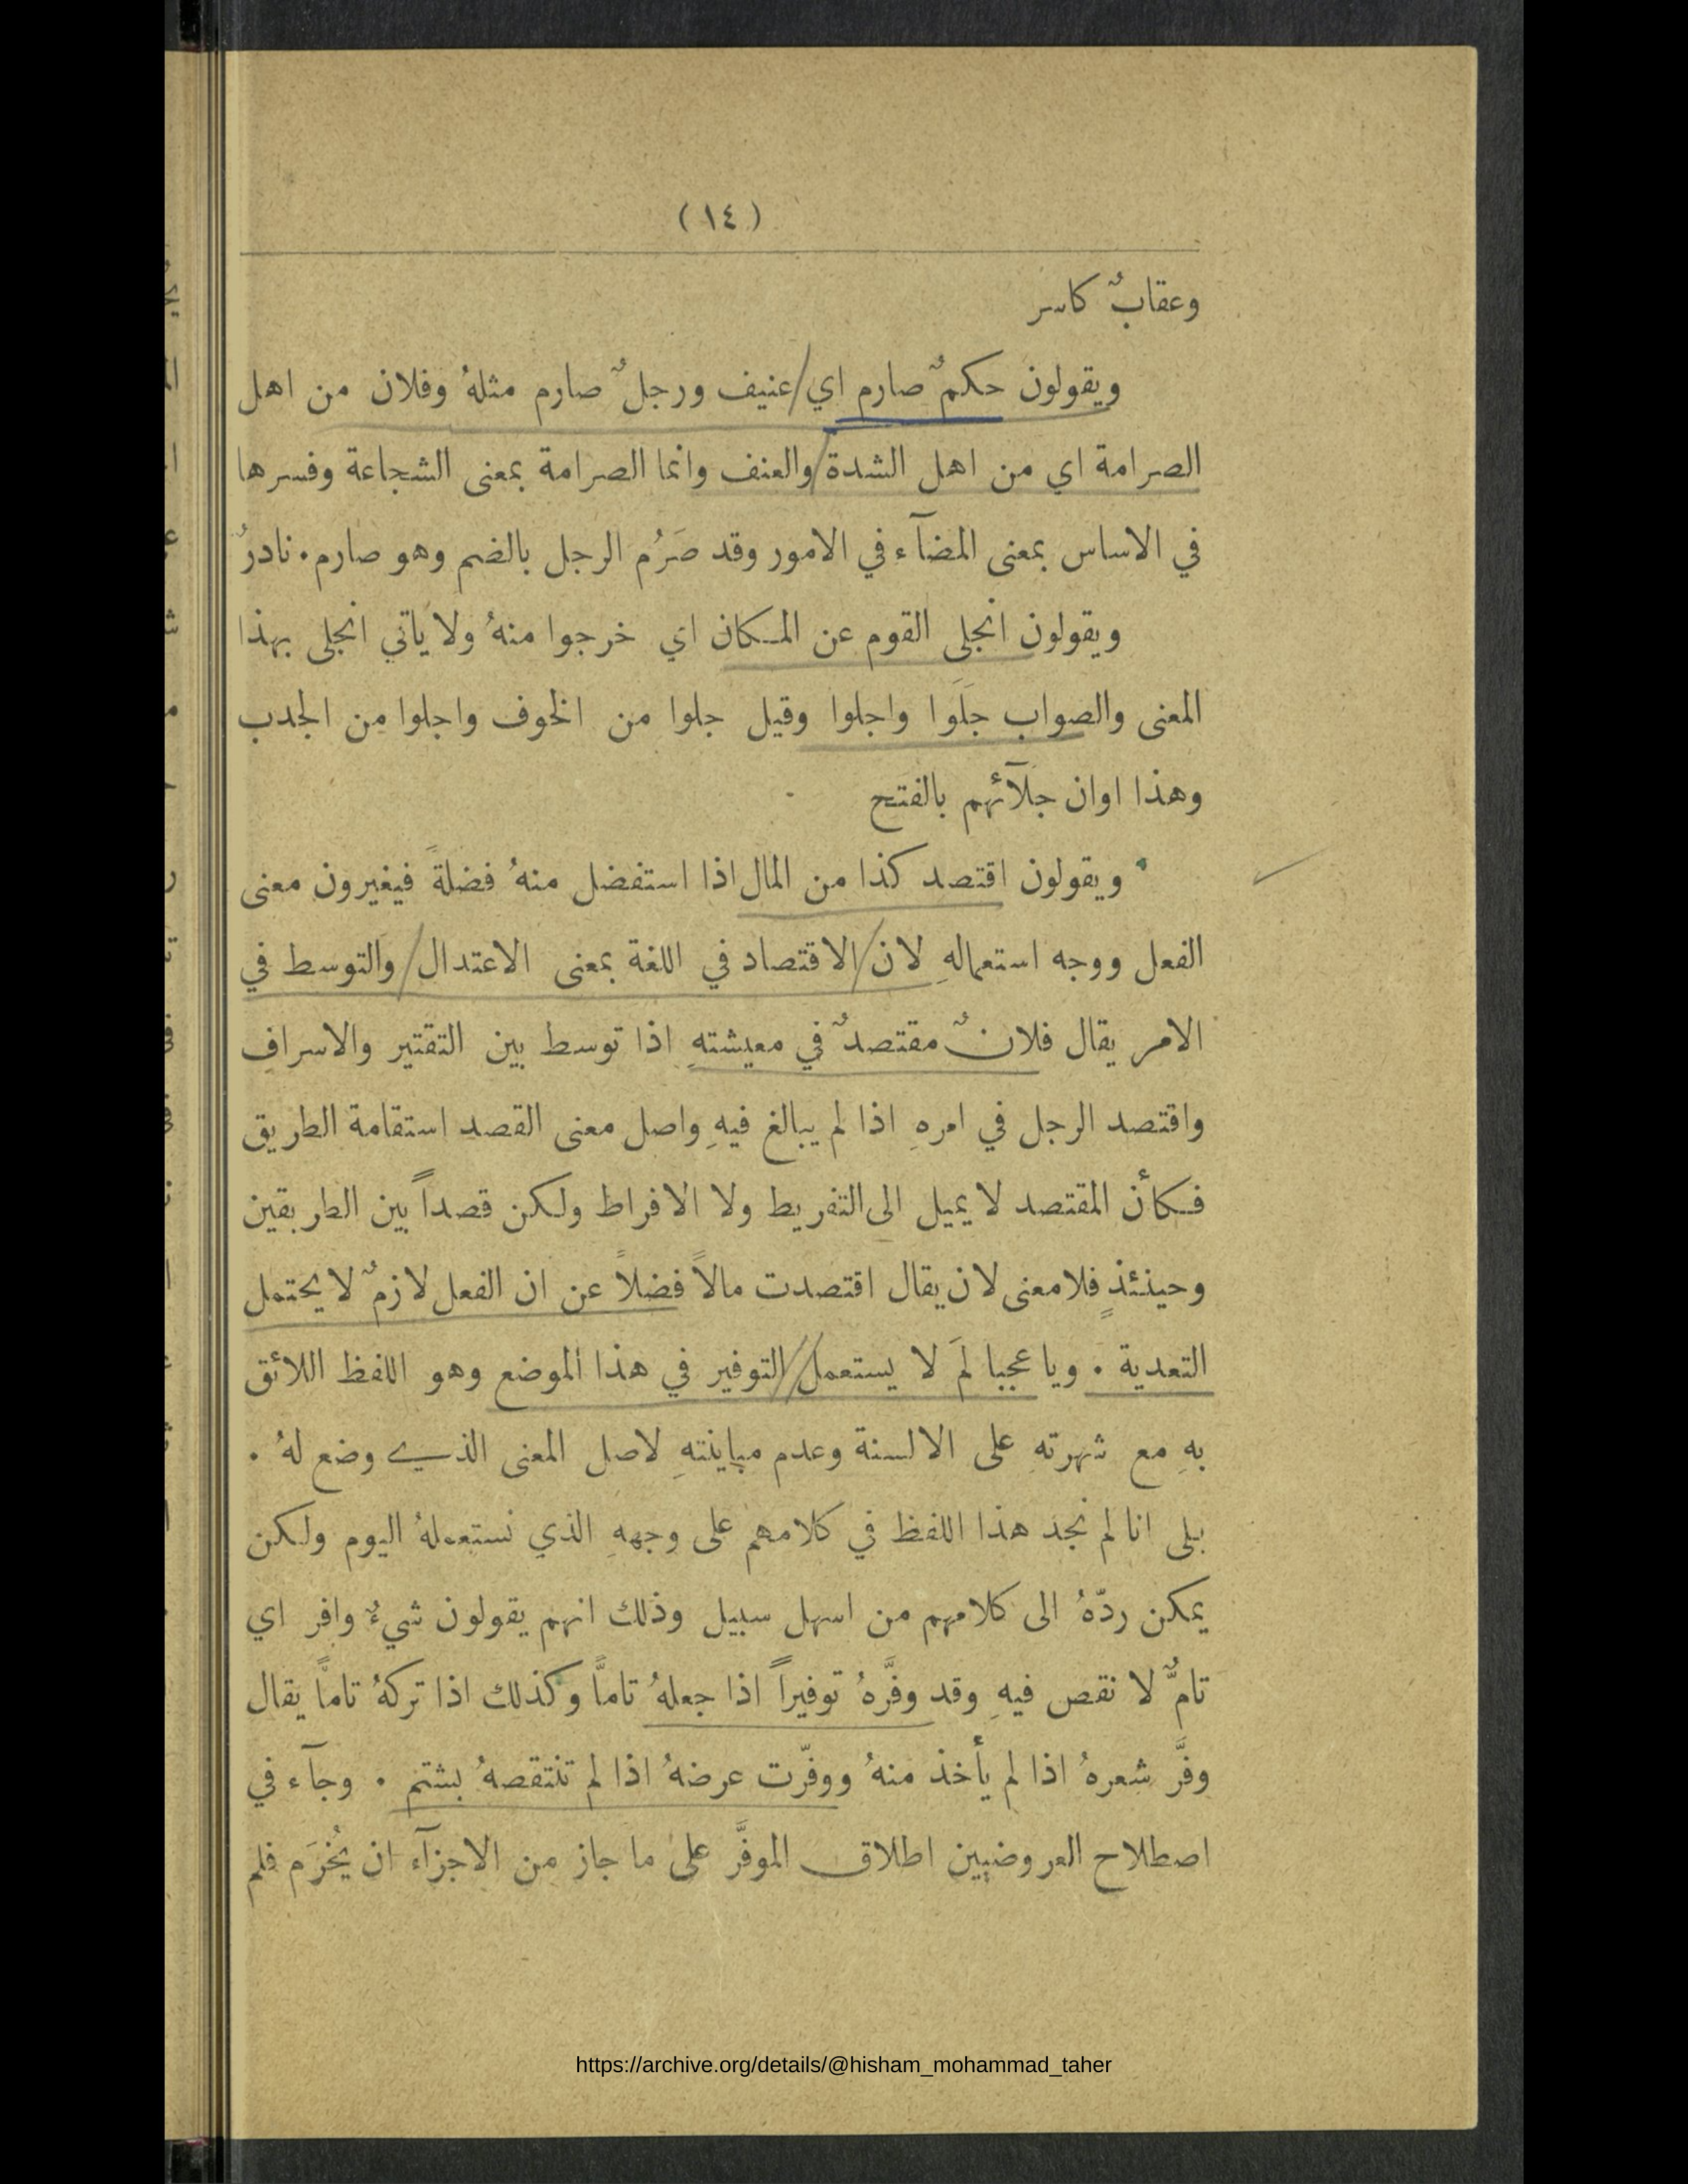 (١٤)
وعقابٌ كاسر
ويقولون حكمٌ صارم اي عنيف ورجلٌ صارم مثلهُ وفلان من اهل
الصرامة اي من اهل الشدة والعنف وانما الصرامة بمعنى الشجاعة وفسرها
في الاساس بمعنى المضآء في الامور وقد صَرُم الرجل بالضم وهو صارم. نادرٌ
ويقولون انجلى القوم عن المكان اي خرجوا منهُ ولا ياتي انجلى بهذا
المعنى والصواب جلَوا واجلوا وقيل جلوا من الخوف واجلوا من الجدب
وهذا اوان جلآئهم بالفتح
ويقولون اقتصد كذا من المال اذا استفضل منهُ فضلةً فيغيرون معنى
الفعل ووجه استعمالهِ لان الاقتصاد في اللغة بمعنى الاعتدال والتوسط في
الامر يقال فلانٌ مقتصدٌ في معيشتهِ اذا توسط بين التقتير والاسراف
واقتصد الرجل في امرهِ اذا لم يبالغ فيهِ واصل معنى القصد استقامة الطريق
فكأن المقتصد لا يميل الى التفريط ولا الافراط ولكن قصداً بين الطريقين
وحينئذٍ فلا معنى لان يقال اقتصدت مالاً فضلاً عن ان الفعل لازمٌ لا يحتمل
التعدية. ويا عجبا لمَ لا يستعمل التوفير في هذا الموضع وهو اللفظ اللائق
بهِ مع شهرتهِ على الالسنة وعدم مباينتهِ لاصل المعنى الذي وضع لهُ.
بلى انا لم نجد هذا اللفظ في كلامهم على وجههِ الذي نستعملهُ اليوم ولكن
يمكن ردّهُ الى كلامهم من اسهل سبيل وذلك انهم يقولون شيءٌ وافر اي
تامٌّ لا نقص فيهِ وقد وفَّرهُ توفيراً اذا جعلهُ تامًّا وكذلك اذا تركهُ تامًّا يقال
وفَّر شعرهُ اذا لم يأخذ منهُ ووفّرت عرضهُ اذا لم تنتقصهُ بشتم. وجآء في
اصطلاح العروضيين اطلاق الموفَّر على ما جاز من الاجزآء ان يُخرَم فلم
https://archive.org/details/@hisham_mohammad_taher